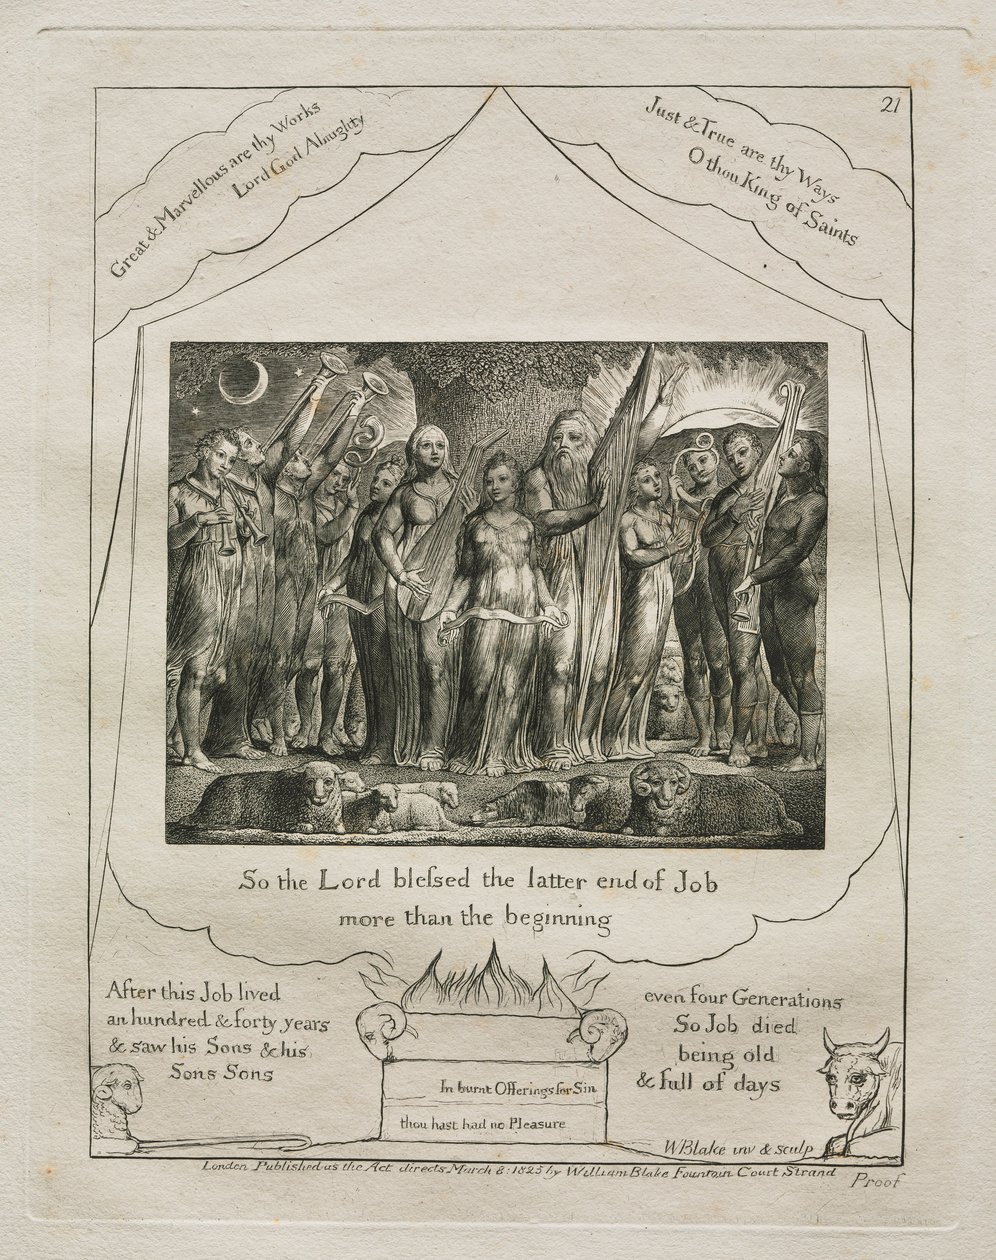 Great & Marvellous are thy Works
Lord God Almighty
Just & True are thy Ways
O thou King of Saints
21
So the Lord bleſsed the latter end of Job
more than the beginning
After this Job lived
an hundred & forty years
& saw his Sons & his
Sons Sons
even four Generations
So Job died
being old
& full of days
In burnt Offerings for Sin
thou hast had no Pleasure
WBlake inv & sculp
London Published as the Act directs March 8: 1825 by William Blake Fountain Court Strand
Proof